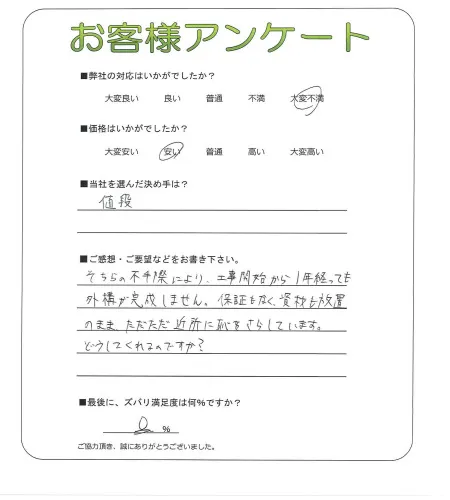 お客様アンケート
■弊社の対応はいかがでしたか？
大変良い　良い　普通　不満　大変不満
■価格はいかがでしたか？
大変安い　安い　普通　高い　大変高い
■当社を選んだ決め手は？
値段
■ご感想・ご要望などをお書き下さい。
そちらの不手際により、工事開始から1年経っても
外構が完成しません。保証もなく、資材も放置
のまま、ただただ近所に恥をさらしています。
どうしてくれるのですか？
■最後に、ズバリ満足度は何%ですか？
0 %
ご協力頂き、誠にありがとうございました。